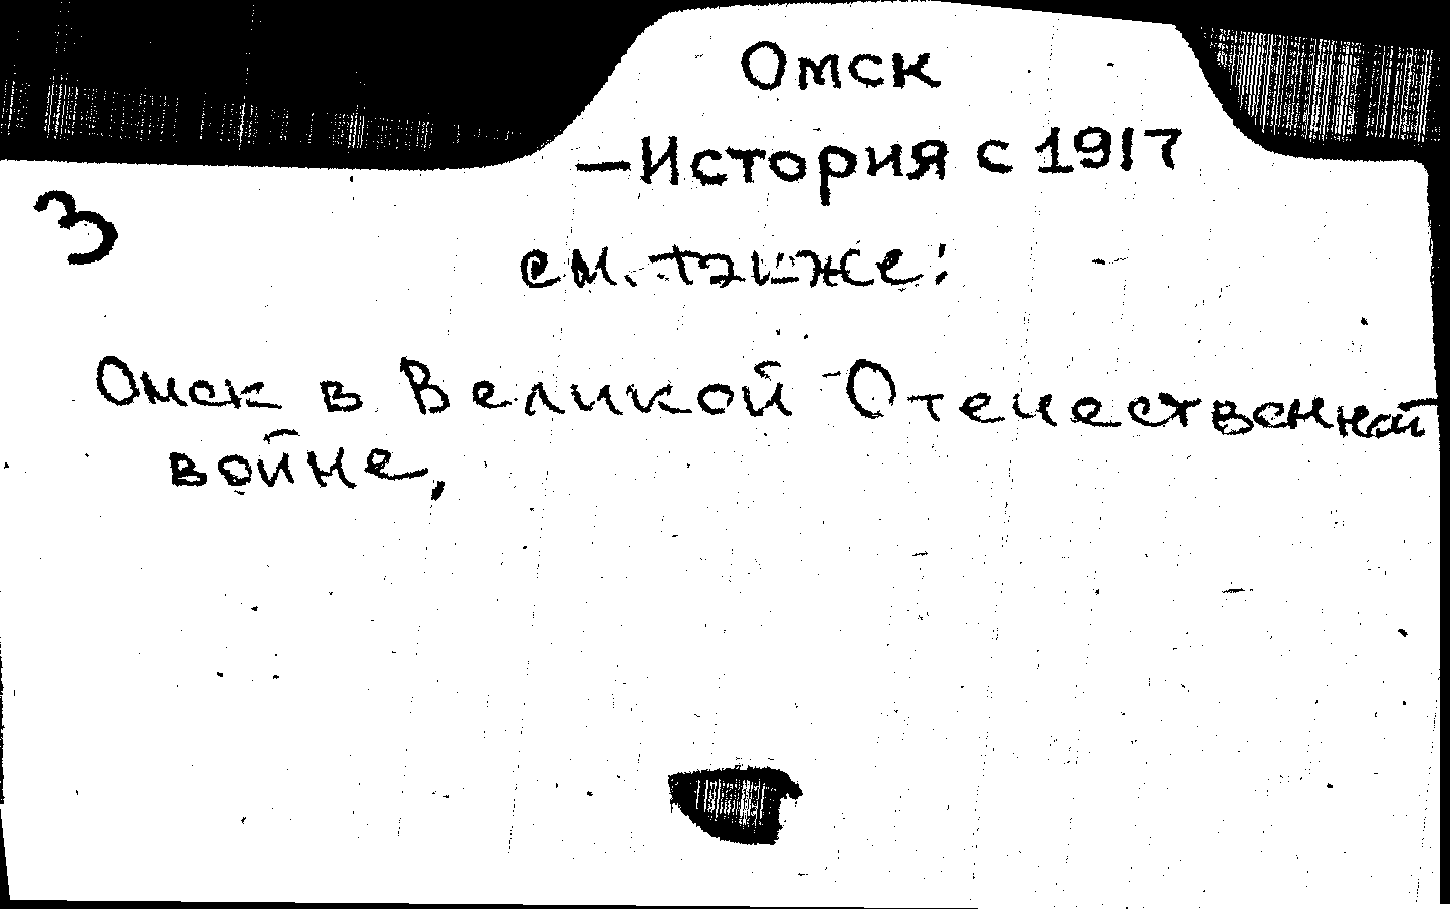 Омск
—История с 1917
З
см. также:
Омск в Великой Отечественной
войне,